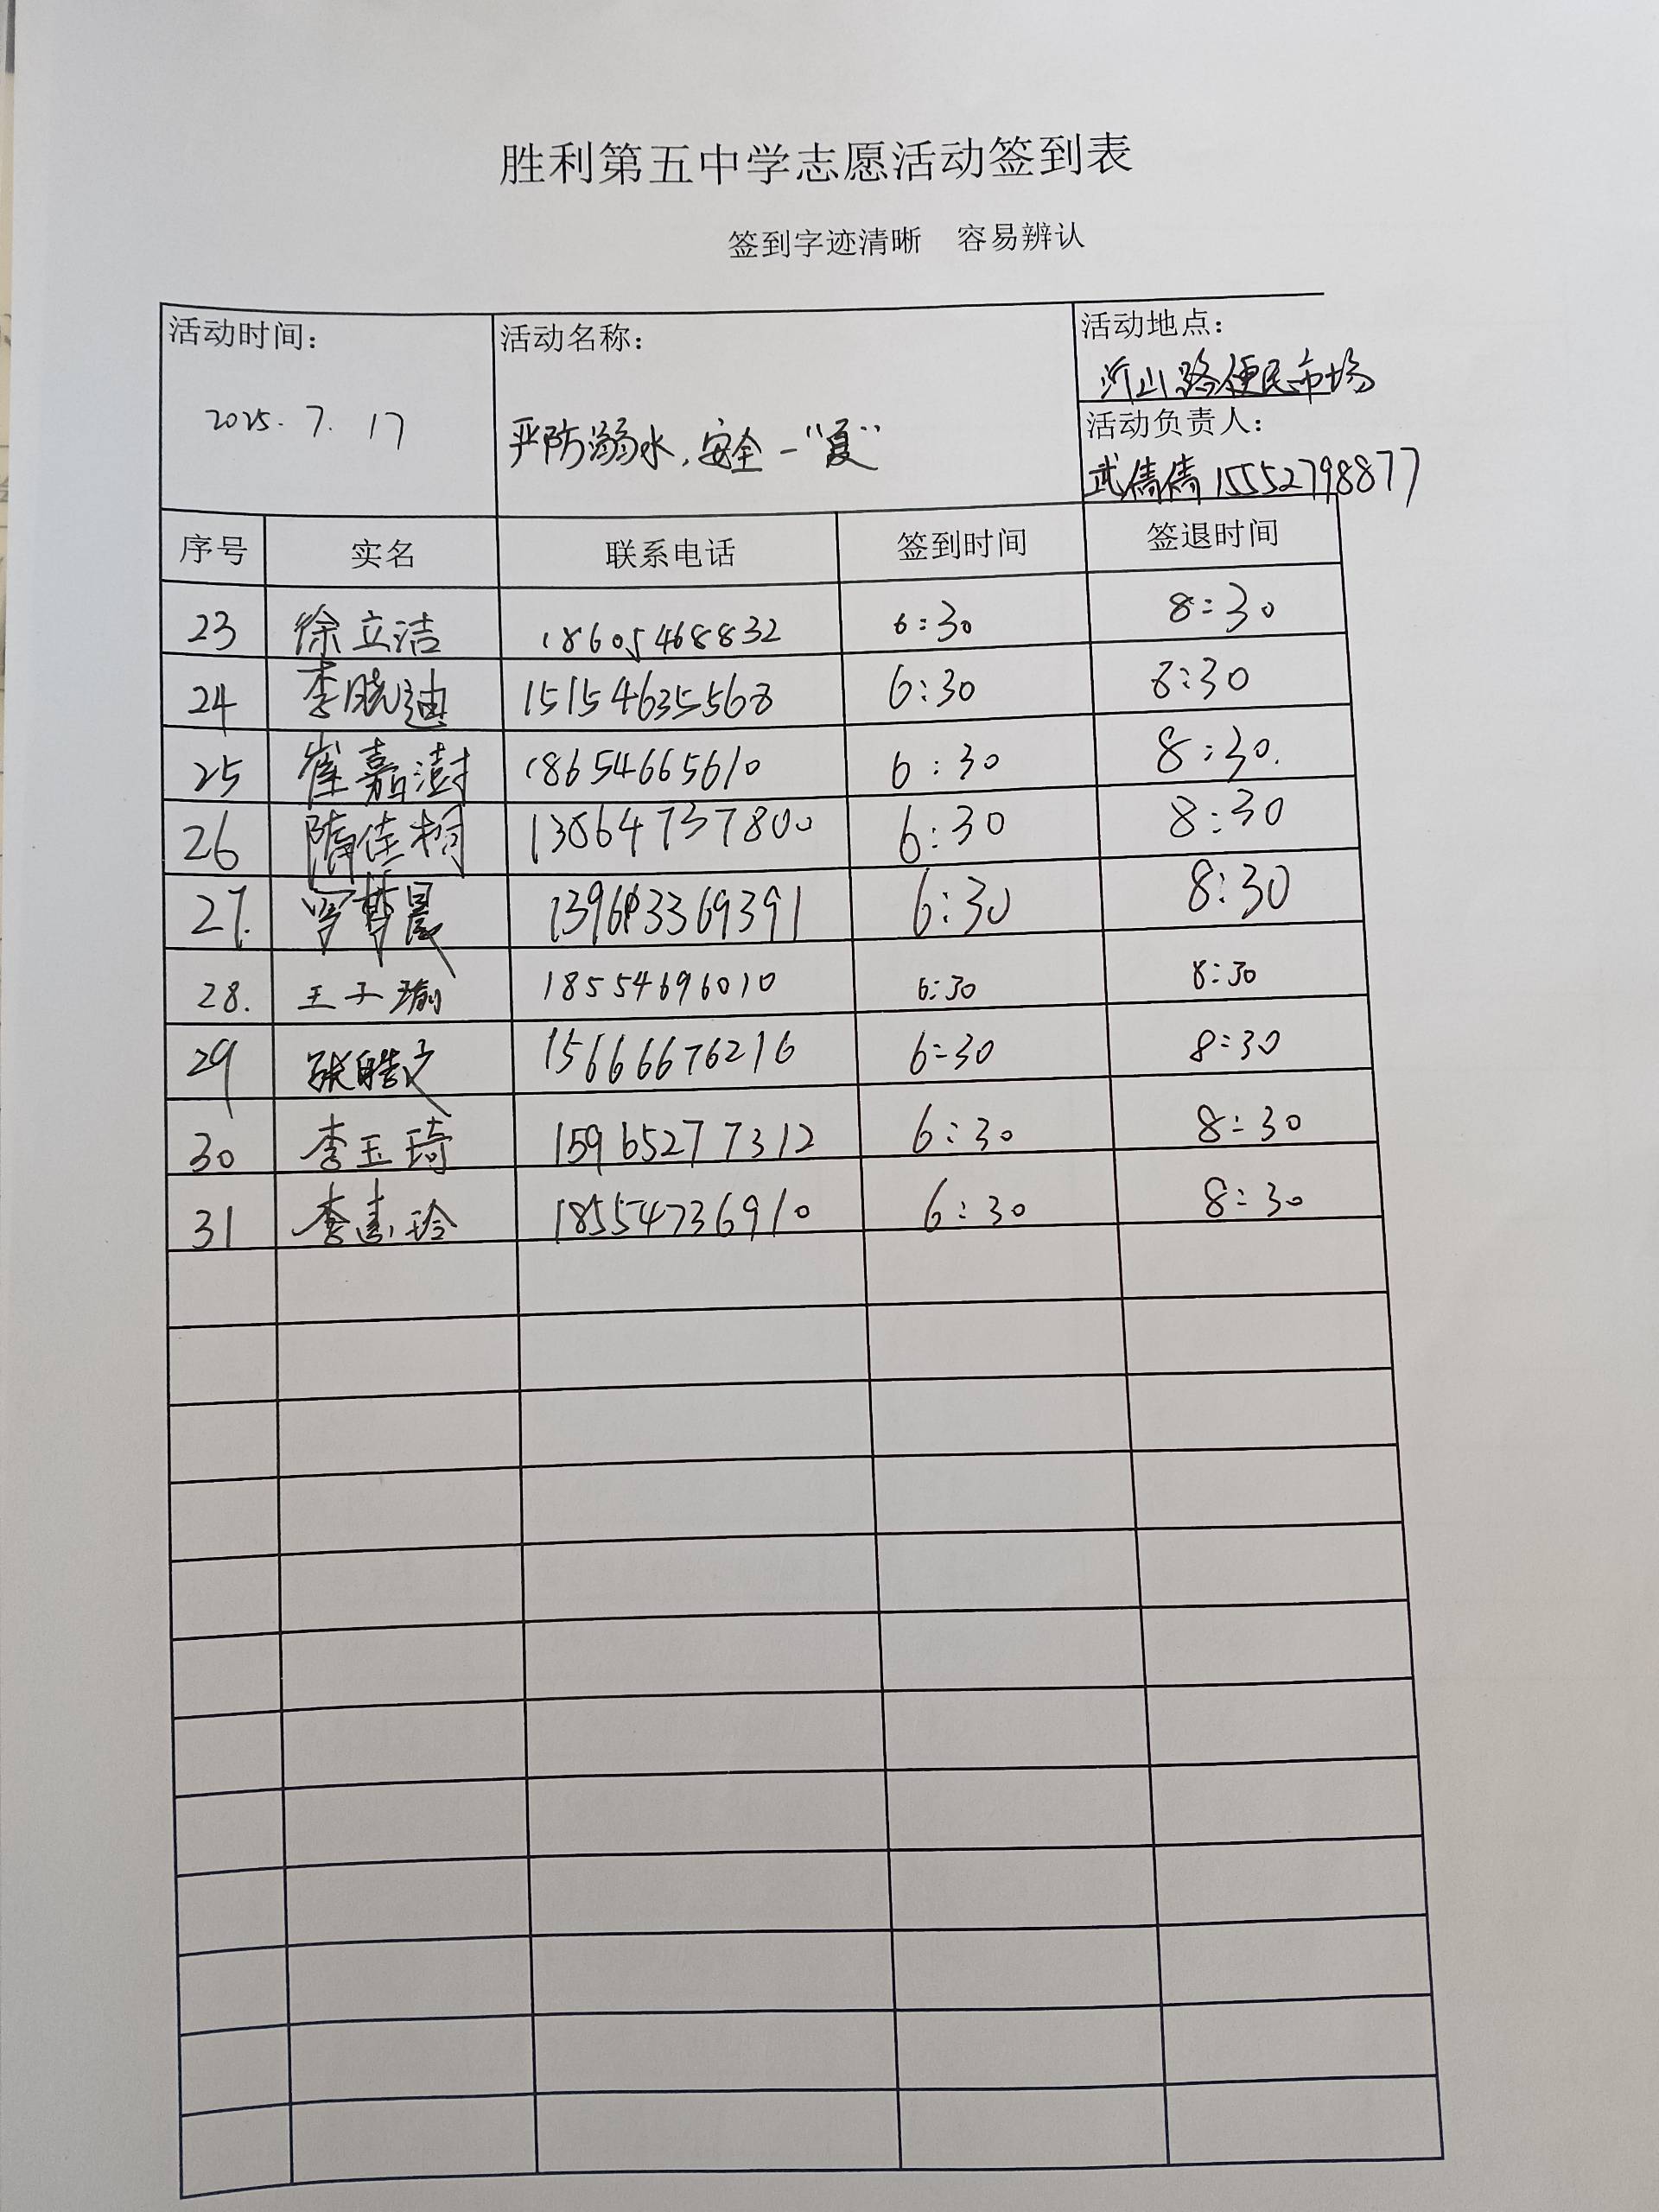 胜利第五中学志愿活动签到表
签到字迹清晰 容易辨认
活动时间: 2025.7.17
活动名称: 严防溺水,安全一“夏”
活动地点: 沂山路便民市场
活动负责人: 武倩倩 15552798877
序号 实名 联系电话 签到时间 签退时间
23 徐立洁 18605468832 6:30 8:30
24 李晓迪 15154635568 6:30 8:30
25 崔嘉澍 18654665610 6:30 8:30.
26 隋佳桐 13864737800 6:30 8:30
27. 晨 6:30 8:30
28. 王子瑜 18554696010 6:30 8:30
29 张皓文 15666676216 6:30 8:30
30 李玉琦 15965277312 6:30 8:30
31 李 玲 18554736910 6:30 8:30